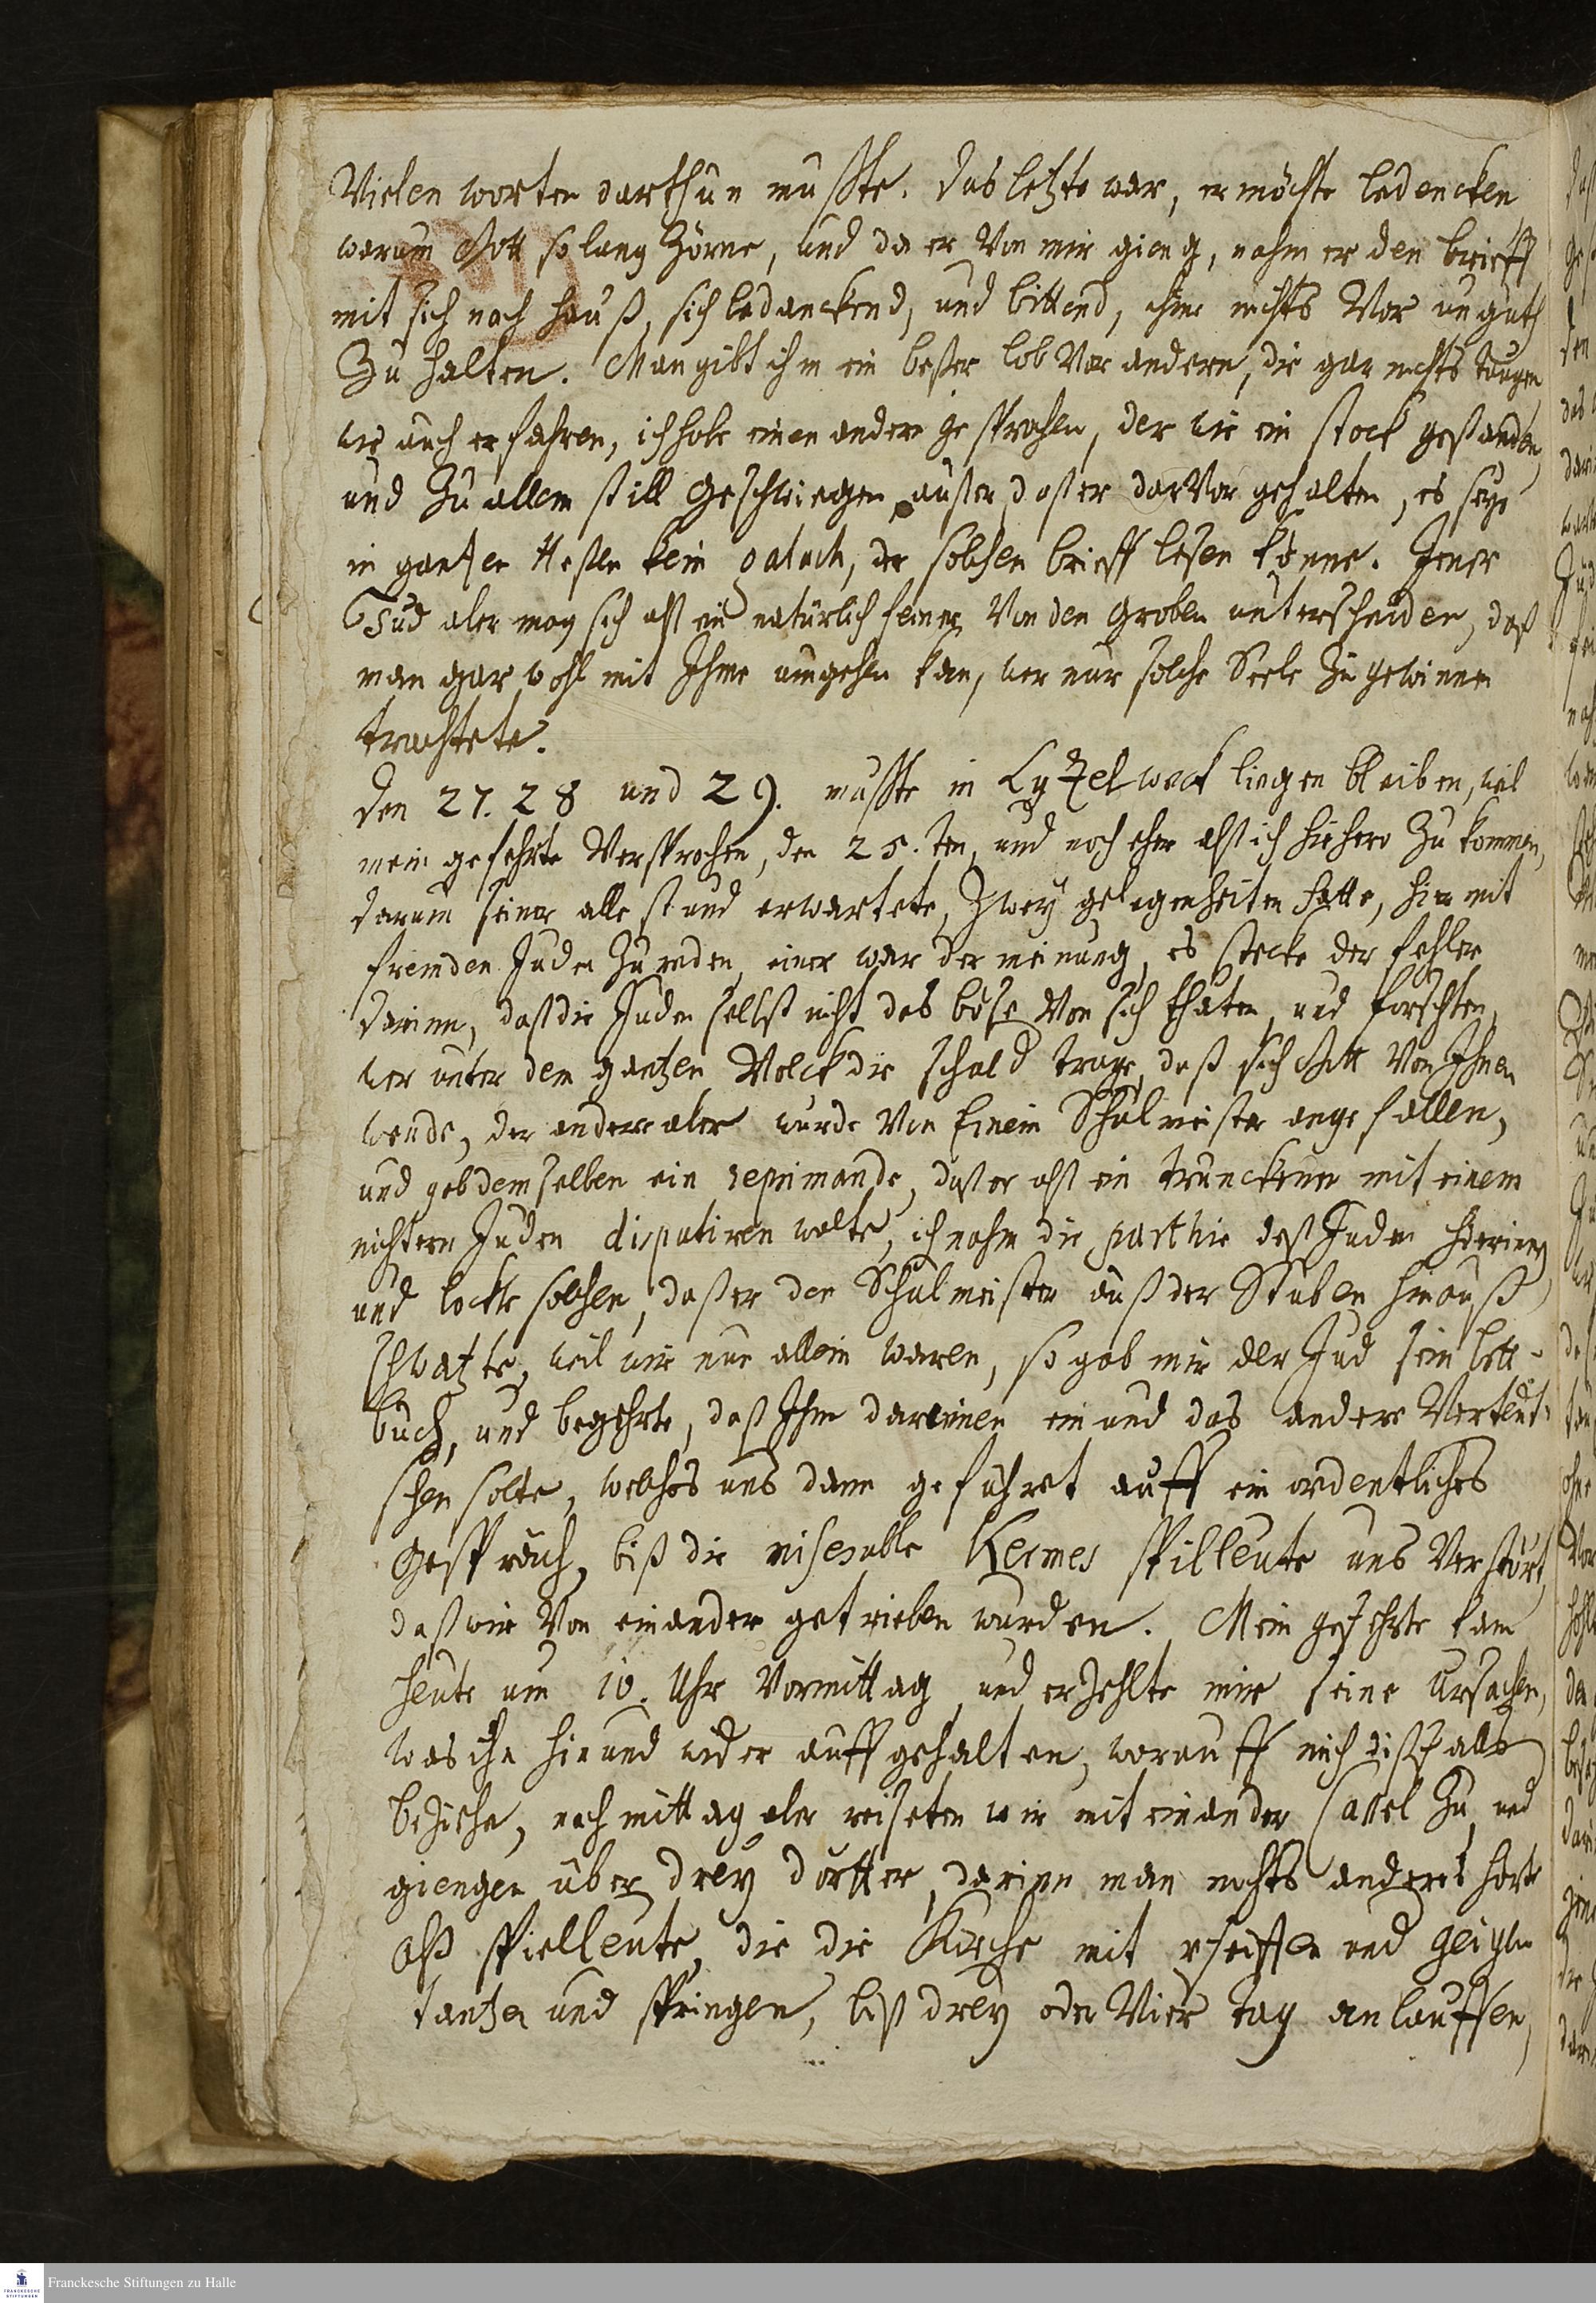 Vielen worten darthun muste. das letzte war, er möchte bedencken
warum Gott so lang Zörne, und da er Von mir gieng, nahm er den brieff
mit sich nach hauß, sich bedanckend, und bittend, ihm nichts Vor unguth
Zu halten. Man gibt ihm ein beßer lob Vor andern, die gar nichts taugen
wie auch erfahren, ich habe einen andern gesprochen, der wie ein stock gestanden,
und Zu allem still geschwiegen, außer daß er darVor gehalten, es seye
in gantzen Heßen kein galach, der solchen brieff lesen könne. Jener
Jud aber mag sich alß ein natürlich feiner Von den groben unterscheiden, daß
man gar wohl mit Ihme umgehen kan, wer nur solche Seele Zu gewinnen
trachtete.
den 27. 28 und 29. muste in Lützelweck liegen bleiben, weil
mein gefehrte Versprochen, den 25.ten, und noch eher alß ich hiehero Zu kommen,
darum seiner alle stund erwartete, Zwey gelegenheiten hatte, hier mit
fremden Juden Zu reden, einer war der meinung, es stecke der fehler
darinn, daß die Juden selbst nicht das böse Von sich thäten, und forschten,
wer unter dem gantzen Volck die schuld trage, daß sich Gott Von Ihnen
wende, der andere aber wurde Von Einem Schulmeister angefallen,
und gab demselben ein reprimande, daß er alß ein trunckener mit einem
nüchtern Juden disputiren wolte, ich nahm die parthie deß Juden hierinn
und lockte solchen, daß er den Schulmeister auß der Stuben hinauß
schwatzte, weil wir nun allein waren, so gab mir der Jud sein bett-
buch, und begehrte, daß Ihm darinnen ein und das andere Verteut-
schen solte, welches uns dann geführet auff ein ordentliches
Gespräch, biß die miserable Kermes spilleute uns Verstört,
daß wir Von einander getrieben wurden. Mein gefehrte kam
heute um 10. Uhr Vormittag, und erzehlte mir seine Ursachen,
was ihn hin und wider auffgehalten, worauff mich dißfalls
beziehe, nachmittag aber reiseten wir mit einander Cassel Zu, und
giengen über drey dörffer, darinn man nichts anders hört
alß spielleute, die die Kirche mit pfeiffen und geigen
tantzen und springen, biß drey oder Vier tag anlauffen,
Franckesche Stiftungen zu Halle